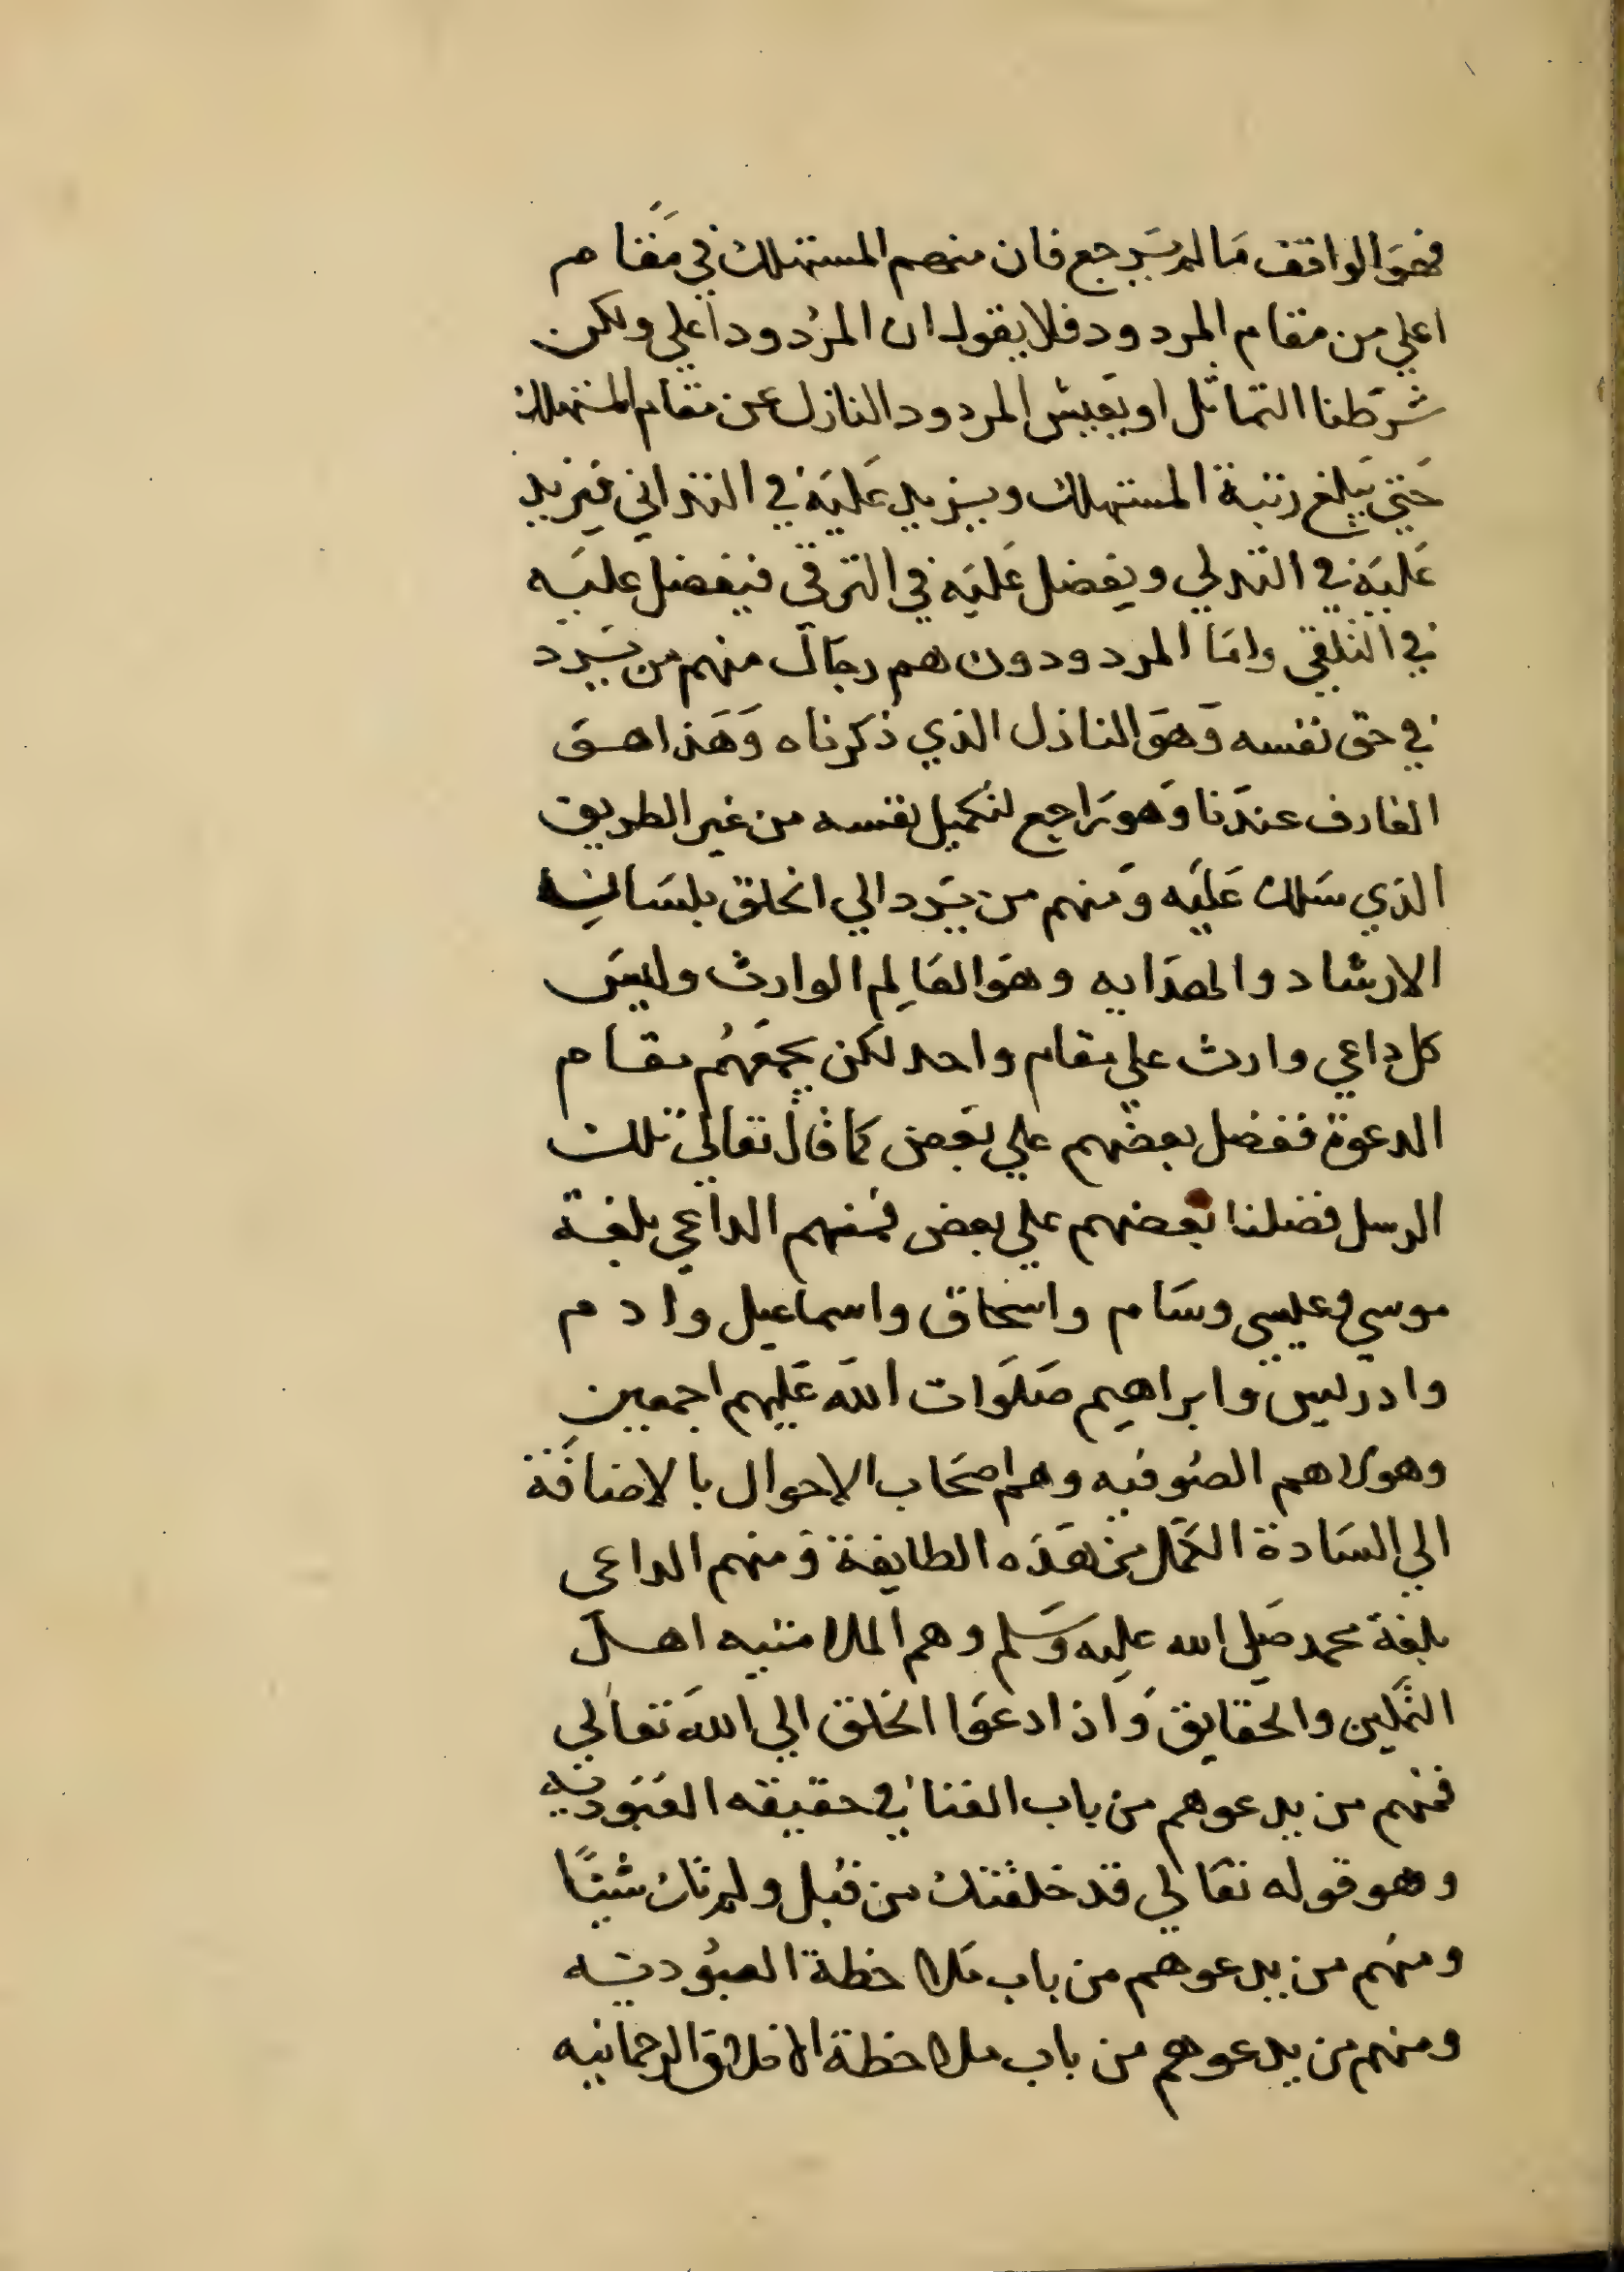 فهوَ الواقف مَا لم يَرجع فان منهم المستهلك في مَقام
اعلي من مقام المردود فلا يقول ان المردود اعلي ولكن
شرَطنا التماثل او يَعيش المردود النازل عن مقام المستهلك
حَتي يَبلغ رتبة المستهلك ويزيد عَليَه في التداني فيزيد
عَليَه في التدلي ويفضل عَليَه في الترقي فيفضل عليَه
في التلقي وامَا المردودون هم رجَال منهم من يَرد
في حق نفسه وَهوَ النازل الذي ذكرناه وَهَذا هـو
العارف عندَنا وَهوَ رَاجع لتكميل نفسه من غير الطريق
الذي سَلك عَليَه وَمنهم من يَرد الي الخلق بلسَان
الارشاد والهدَايه وهوَ العَالِم الوارث وليسَ
كل داعي وارث علي مقام واحد لكن يجمَعهُم مقـام
الدعوة ففضل بعضهم علي بَعض كما قال تعالي تلك
الرسل فضلنا بعضهم علي بعض فمنهم الداعي بلغـة
موسي وعيسي وسَام واسحَاق واسماعيل وادم
وادرَيس وابراهيم صَلوَات الله عَليهم اجمعين
وهولاهم الصُوفيه وهم اصحَاب الاحوال بالاضافَة
الي السَادة الكمَل من هَذه الطايفة وَمنهم الداعي
بلغة محمد صَلي الله عليه وَسَلم وهم الملامتيه اهـل
التمَكين والحقايق وَاذا دعَوا الخلق الي الله تعَالي
فمنهم من يدعوهم من باب الفنا في حقيقه العَبُوديَه
وهو قوله تعَالي قد خلقتك من قبل ولم تك شيئًا
ومنهم من يدعوهم من باب مَلاحظة العبُوديَه
ومنهم من يدعوهم من باب ملاحظة الاخلاق الرحمانيه